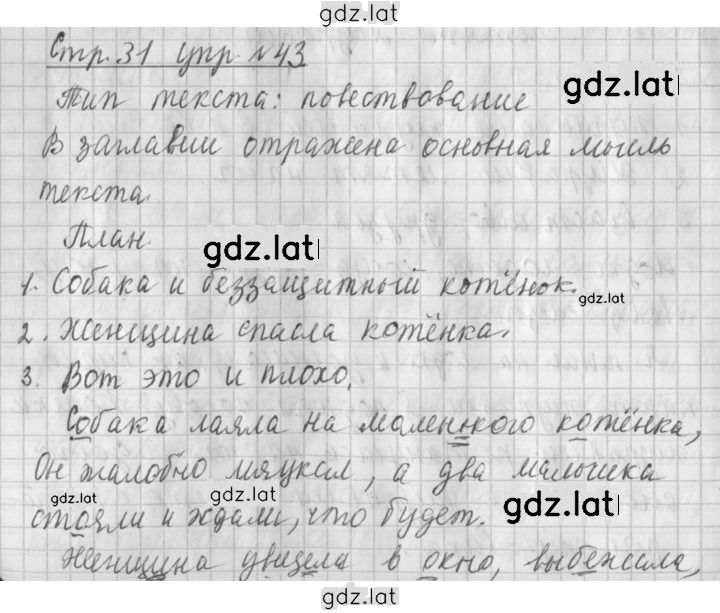 gdz.lat
Стр. 31 упр №43
gdz.lat
Тип текста: повествование
В заглавии отражена основная мысль
текста.
План.
gdz.lat
1. Собака и беззащитный котёнок.
gdz.lat
2. Женщина спасла котёнка.
3. Вот это и плохо.
Собака лаяла на маленького котёнка,
Он жалобно мяукал, а два малышка
gdz.lat
gdz.lat
gdz.lat
стояли и ждали, что будет.
Женщина увидела в окно, выбежала,
gdz.lat